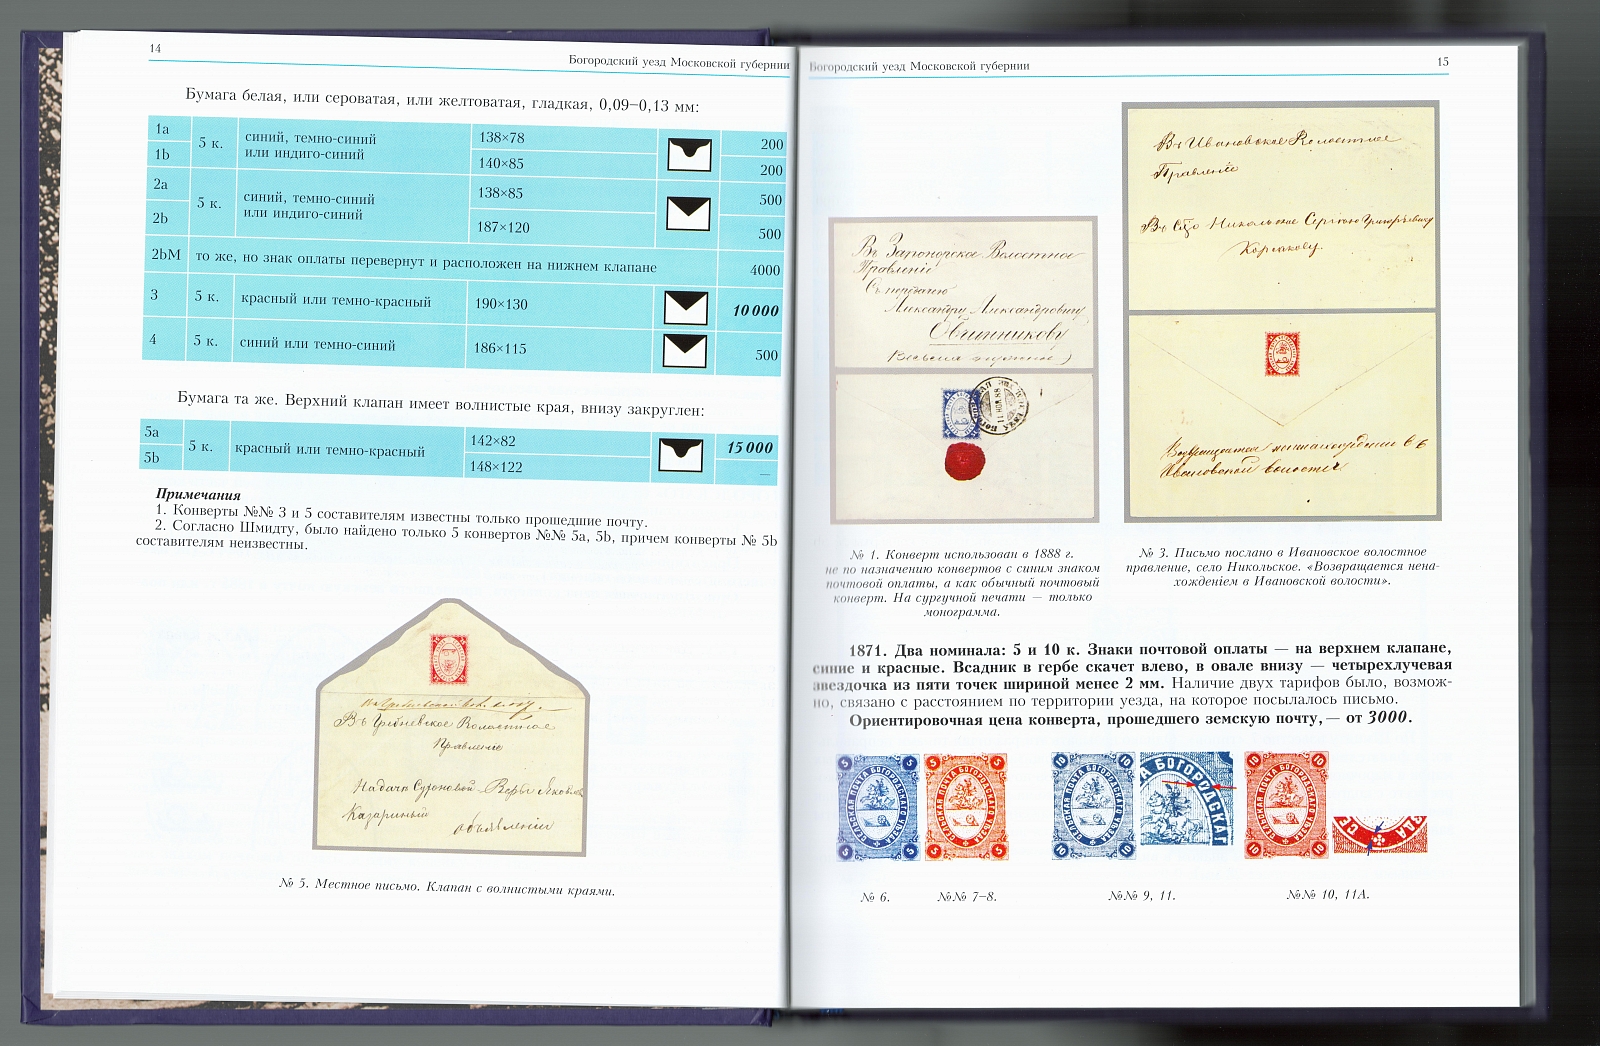 14
Богородский уезд Московской губернии
Бумага белая, или сероватая, или желтоватая, гладкая, 0,09–0,13 мм:
1a 5 к. синий, темно-синий 138×78 200
1b или индиго-синий 140×85 200
2a 5 к. синий, темно-синий 138×85 500
2b или индиго-синий 187×120 500
2bM то же, но знак оплаты перевернут и расположен на нижнем клапане 4000
3 5 к. красный или темно-красный 190×130 10 000
4 5 к. синий или темно-синий 186×115 500
Бумага та же. Верхний клапан имеет волнистые края, внизу закруглен:
5a 5 к. красный или темно-красный 142×82 15 000
5b 148×122 —
Примечания
1. Конверты №№ 3 и 5 составителям известны только прошедшие почту.
2. Согласно Шмидту, было найдено только 5 конвертов №№ 5a, 5b, причем конверты № 5b
составителям неизвестны.
Въ Гребневское Волостное
Правленіе
Казариный
объявленіи
№ 5. Местное письмо. Клапан с волнистыми краями.
Богородский уезд Московской губернии
15
Въ Запонорское Волостное
Правленіе
Александру Александровичу
Овчинникову
Въ Ивановское Волостное
Правленіе
Въ Село Никольское Сергею Григорьевичу
Корсакову.
Возвращается ненахожденіем въ
Ивановской волости
№ 1. Конверт использован в 1888 г.
не по назначению конвертов с синим знаком
почтовой оплаты, а как обычный почтовый
конверт. На сургучной печати — только
монограмма.
№ 3. Письмо послано в Ивановское волостное
правление, село Никольское. «Возвращается нена-
хождением в Ивановской волости».
1871. Два номинала: 5 и 10 к. Знаки почтовой оплаты — на верхнем клапане,
синие и красные. Всадник в гербе скачет влево, в овале внизу — четырехлучевая
звездочка из пяти точек шириной менее 2 мм. Наличие двух тарифов было, возмож-
но, связано с расстоянием по территории уезда, на которое посылалось письмо.
Ориентировочная цена конверта, прошедшего земскую почту,— от 3000.
5 5 5 5 СЕЛЬСКАЯ ПОЧТА БОГОРОДСКАГО УѢЗДА
5 5 5 5 СЕЛЬСКАЯ ПОЧТА БОГОРОДСКАГО УѢЗДА
10 10 10 10 СЕЛЬСКАЯ ПОЧТА БОГОРОДСКАГО УѢЗДА
А БОГОРОДСКАГ
10 10 10 10 СЕЛЬСКАЯ ПОЧТА БОГОРОДСКАГО УѢЗДА
СЕ ЗДА
№ 6.
№№ 7–8.
№№ 9, 11.
№№ 10, 11А.